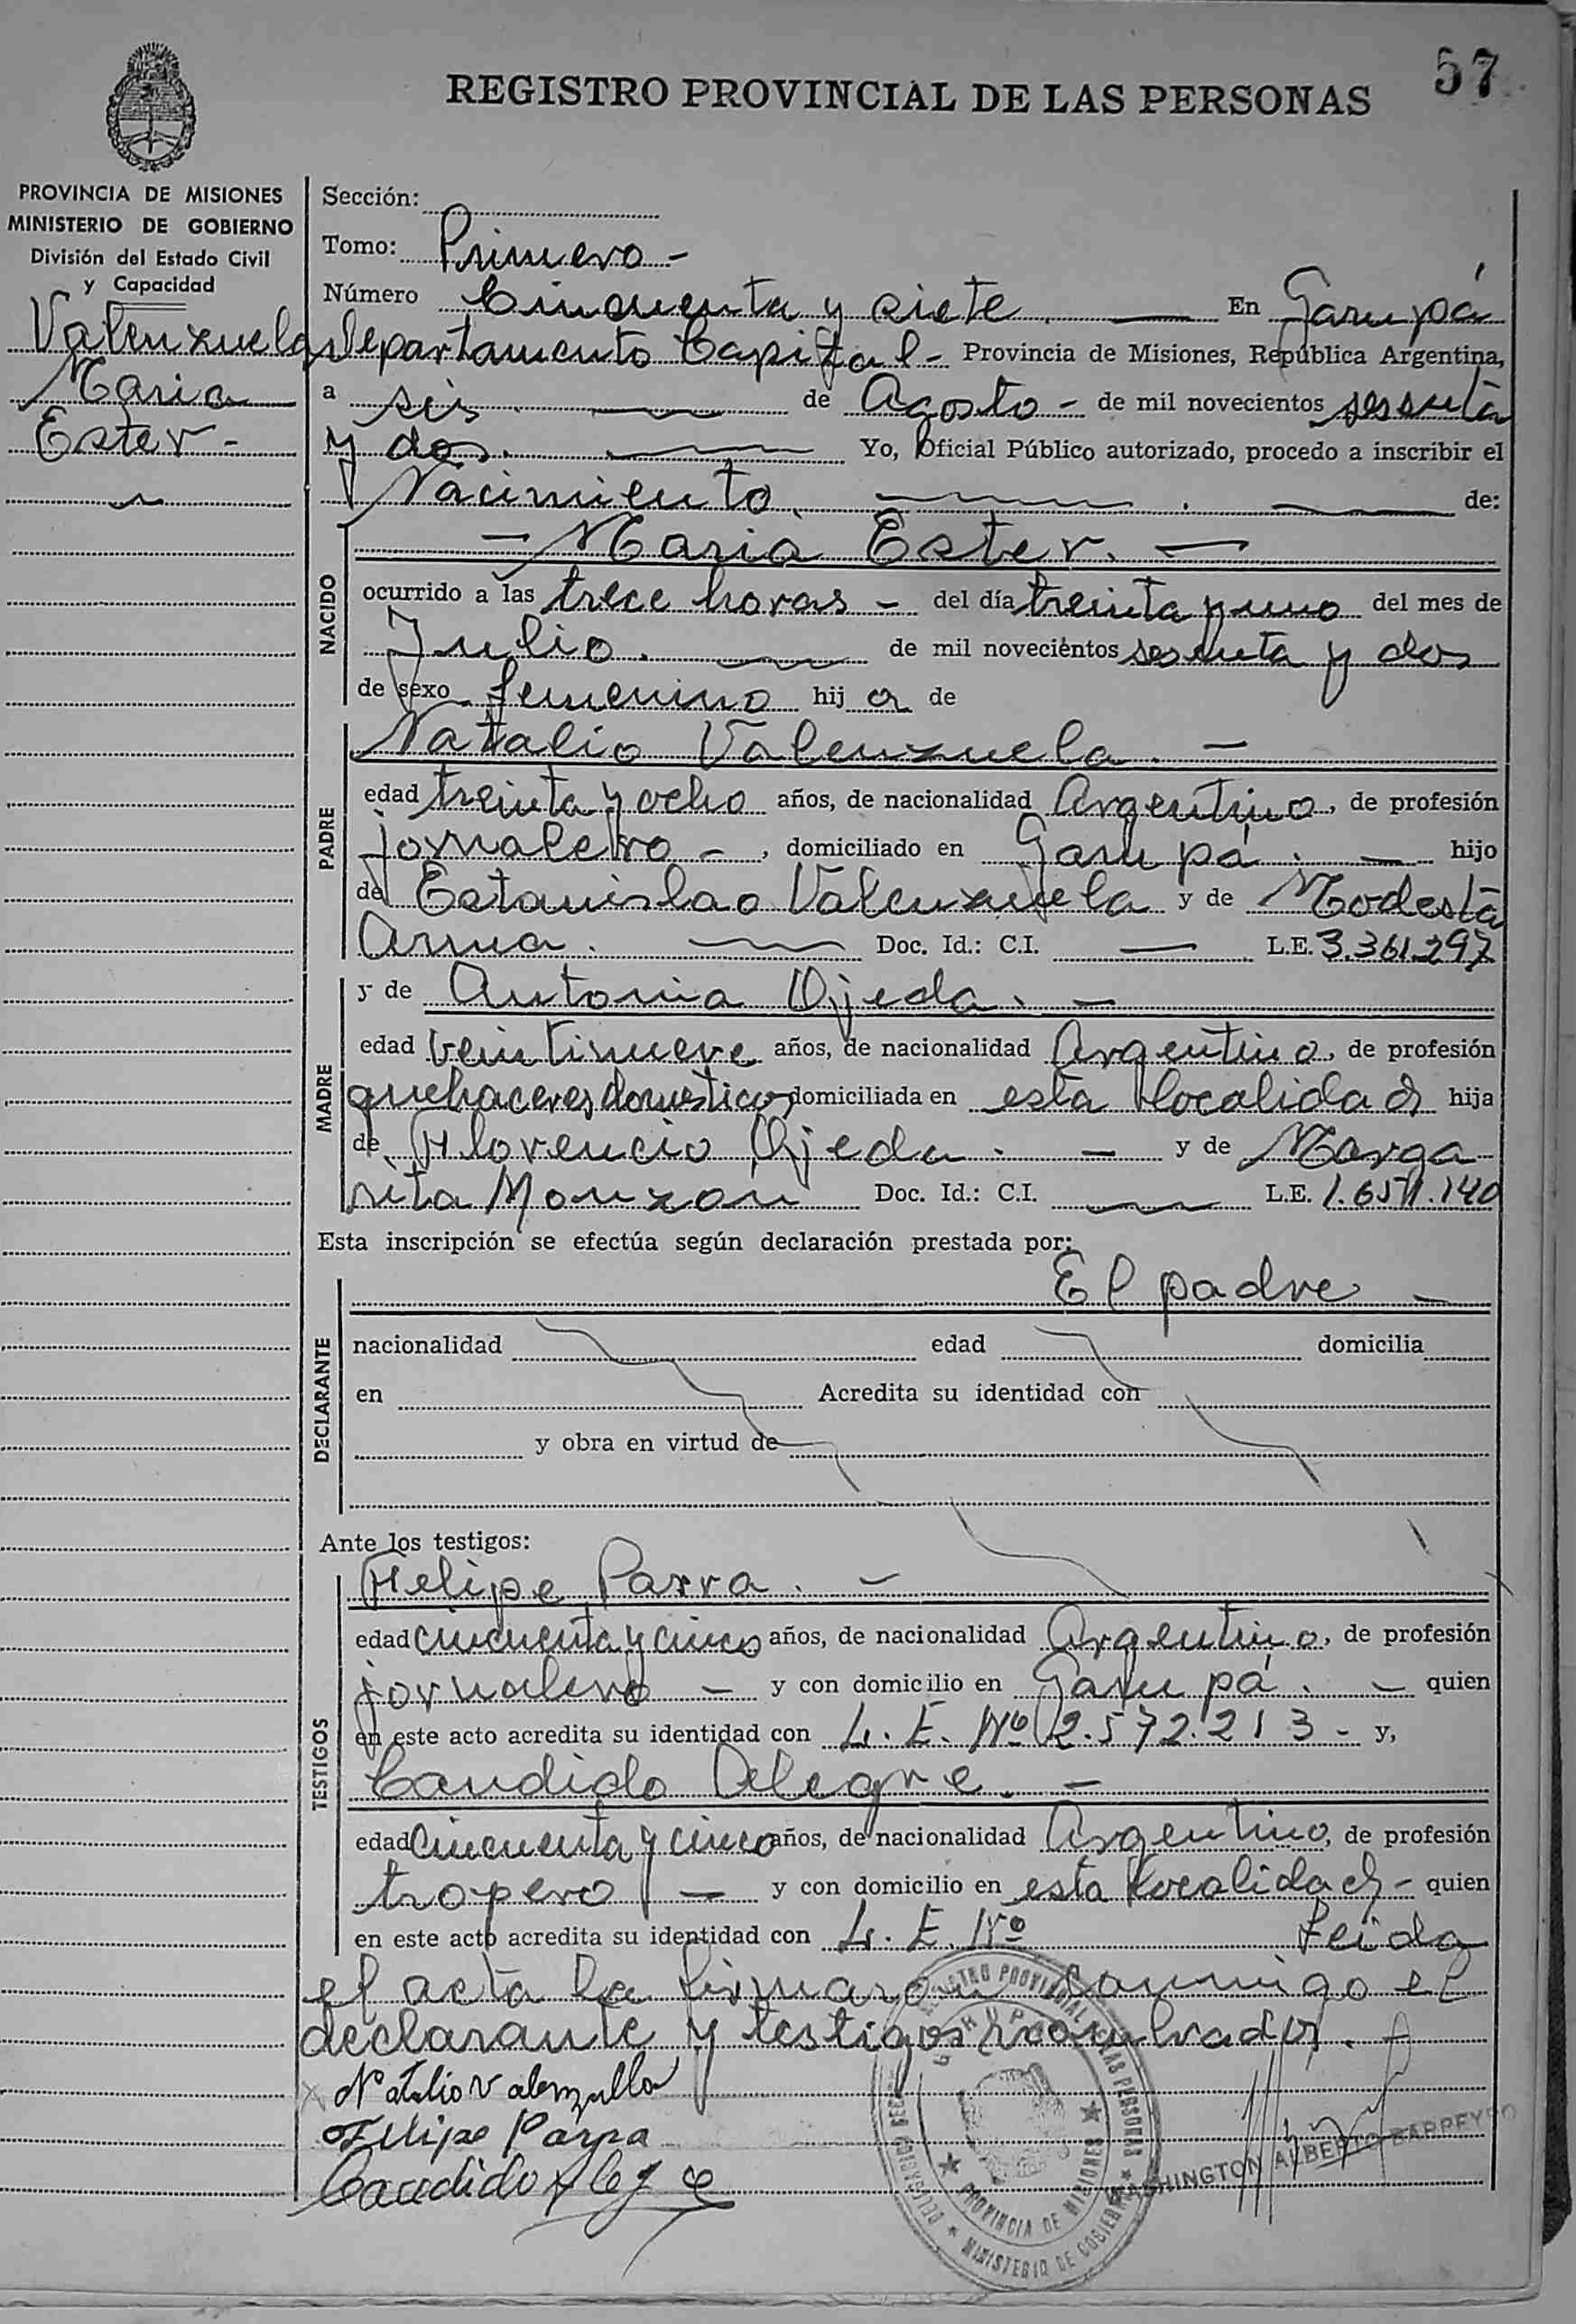 57
REGISTRO PROVINCIAL DE LAS PERSONAS
PROVINCIA DE MISIONES
MINISTERIO DE GOBIERNO
División del Estado Civil
y Capacidad
Valenzuela
Maria
Ester -
Sección:
Tomo: Primero -
Número Cincuenta y siete. En Garupá
departamento Capital - Provincia de Misiones, República Argentina,
a seis de Agosto - de mil novecientos sesenta
y dos. Yo, Oficial Público autorizado, procedo a inscribir el
Nacimiento. de:
NACIDO
- Maria Ester. -
ocurrido a las trece horas - del día treinta y uno del mes de
Julio. de mil novecientos sesenta y dos
de sexo femenino hij a de
PADRE
Natalio Valenzuela. -
edad treinta y ocho años, de nacionalidad Argentino, de profesión
jornalero -, domiciliado en Garupá. - hijo
de Estanislao Valenzuela y de Modesta
Doc. Id.: C.I. — L.E. 3.361.297
MADRE
y de Antonia Ojeda. -
edad veintinueve años, de nacionalidad Argentino, de profesión
quehaceres domesticos, domiciliada en esta localidad hija
de Florencio Ojeda. - y de Marga-
rita Monzon Doc. Id.: C.I. L.E.
Esta inscripción se efectúa según declaración prestada por:
DECLARANTE
El padre -
nacionalidad edad domicilia
en Acredita su identidad con
y obra en virtud de
Ante los testigos:
TESTIGOS
Felipe Parra. -
edad cincuenta y cinco años, de nacionalidad Argentino, de profesión
jornalero - y con domicilio en Garupá. - quien
en este acto acredita su identidad con L. E. Nº 2.572.213 - y,
Candido Alegre. -
edad cincuenta y cinco años, de nacionalidad Argentino, de profesión
tropero - y con domicilio en esta localidad - quien
en este acto acredita su identidad con L. E. Nº Leida
el acta la firmaron conmigo el
declarante y testigos
Natalio Valenzuela
Felipe Parra
Candido Alegre
REGISTRO PROVINCIAL DE LAS PERSONAS
PROVINCIA DE MISIONES
MINISTERIO DE GOBIERNO
WASHINGTON ALBERTO BARREYRO